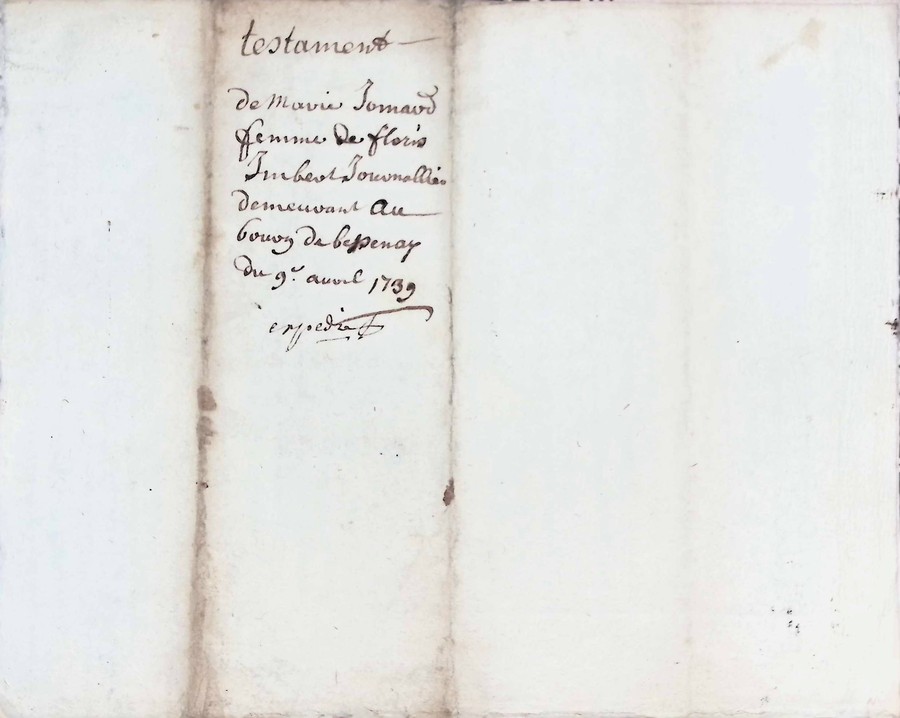 testament
de Marie Jomard
femme de floris
Imbert Journallier
demeurant au
bourg de bessenay
du 9e. avril 1739
expedié